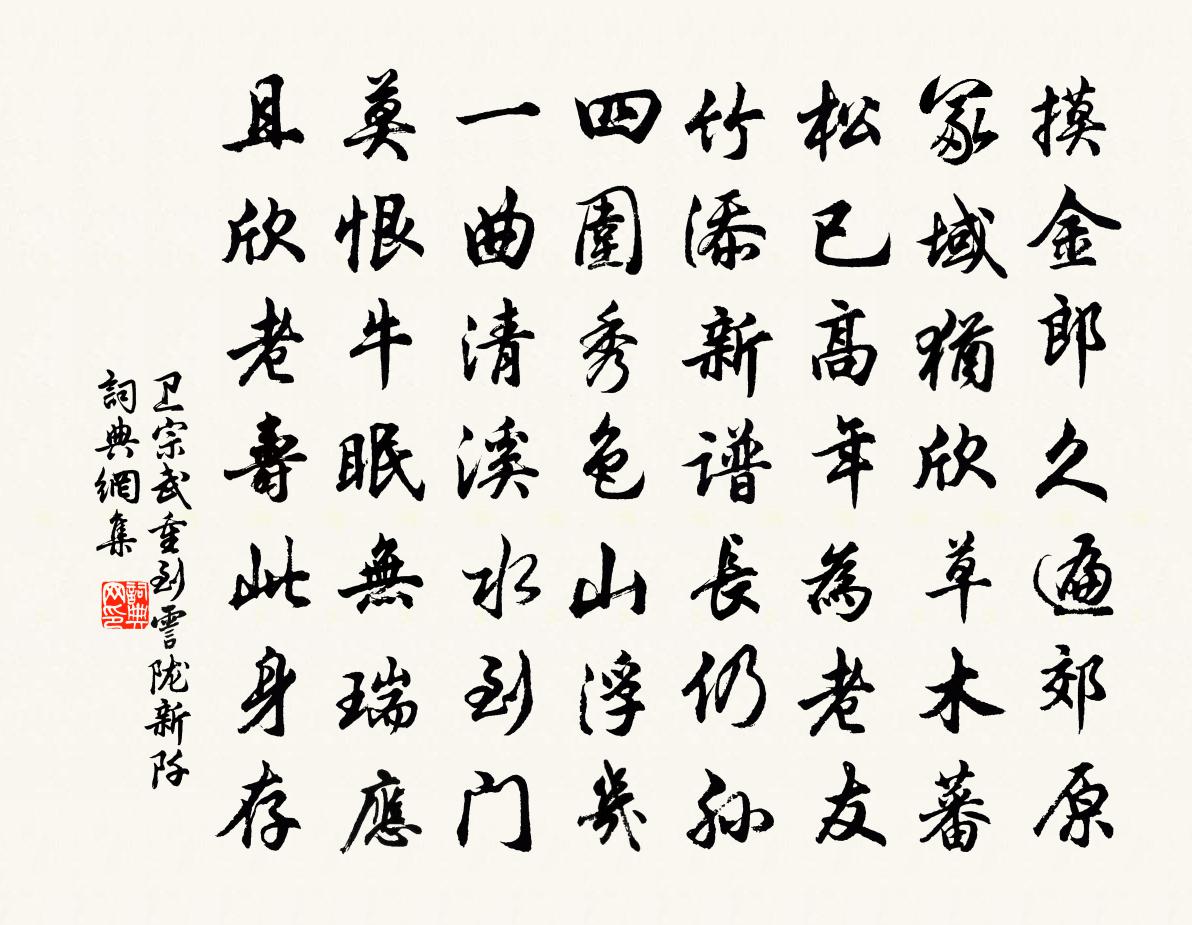 摸金郎久遍郊原
冢域猶欣草木蕃
松已高年為老友
竹添新谱長仍孙
四圍秀色山浮幾
一曲清溪水到门
莫恨牛眠無瑞應
且欣老壽此身存
卫宗武重到雪陇新阡
詞典網集
詞典
网印